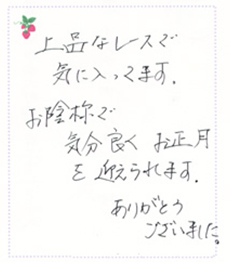 上品なレースで
気に入ってます.
お陰様で
気分良く お正月
を 迎えられます.
ありがとう
ございました。